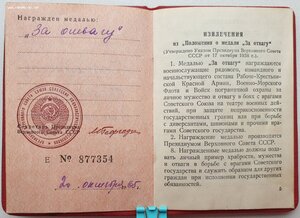 Награжден медалью:
„За отвагу"
Е № 877354
20 октября 65г.
ИЗВЛЕЧЕНИЯ
из „Положения о медали „За отвагу"
(Утверждено Указом Президиума Верховного Совета
СССР от 17 октября 1938 г.)
1. Медалью „За отвагу" награждаются
военнослужащие рядового, командного и
начальствующего состава Рабоче-Крестьян-
ской Красной Армии, Военно-Морского
Флота и Войск пограничной охраны за
личное мужество и отвагу в боях с врагами
Советского Союза на театре военных дей-
ствий, при защите неприкосновенности го-
сударственных границ или при борьбе с
диверсантами, шпионами и прочими вра-
гами Советского государства.
2. Награждение медалью производится
Президиумом Верховного Совета СССР.
8. Награжденные медалью должны пода-
вать личный пример храбрости, мужества
и отваги в борьбе с врагами Советского
государства, а также служить образцом для
других граждан при исполнении государственных
обязанностей.
5